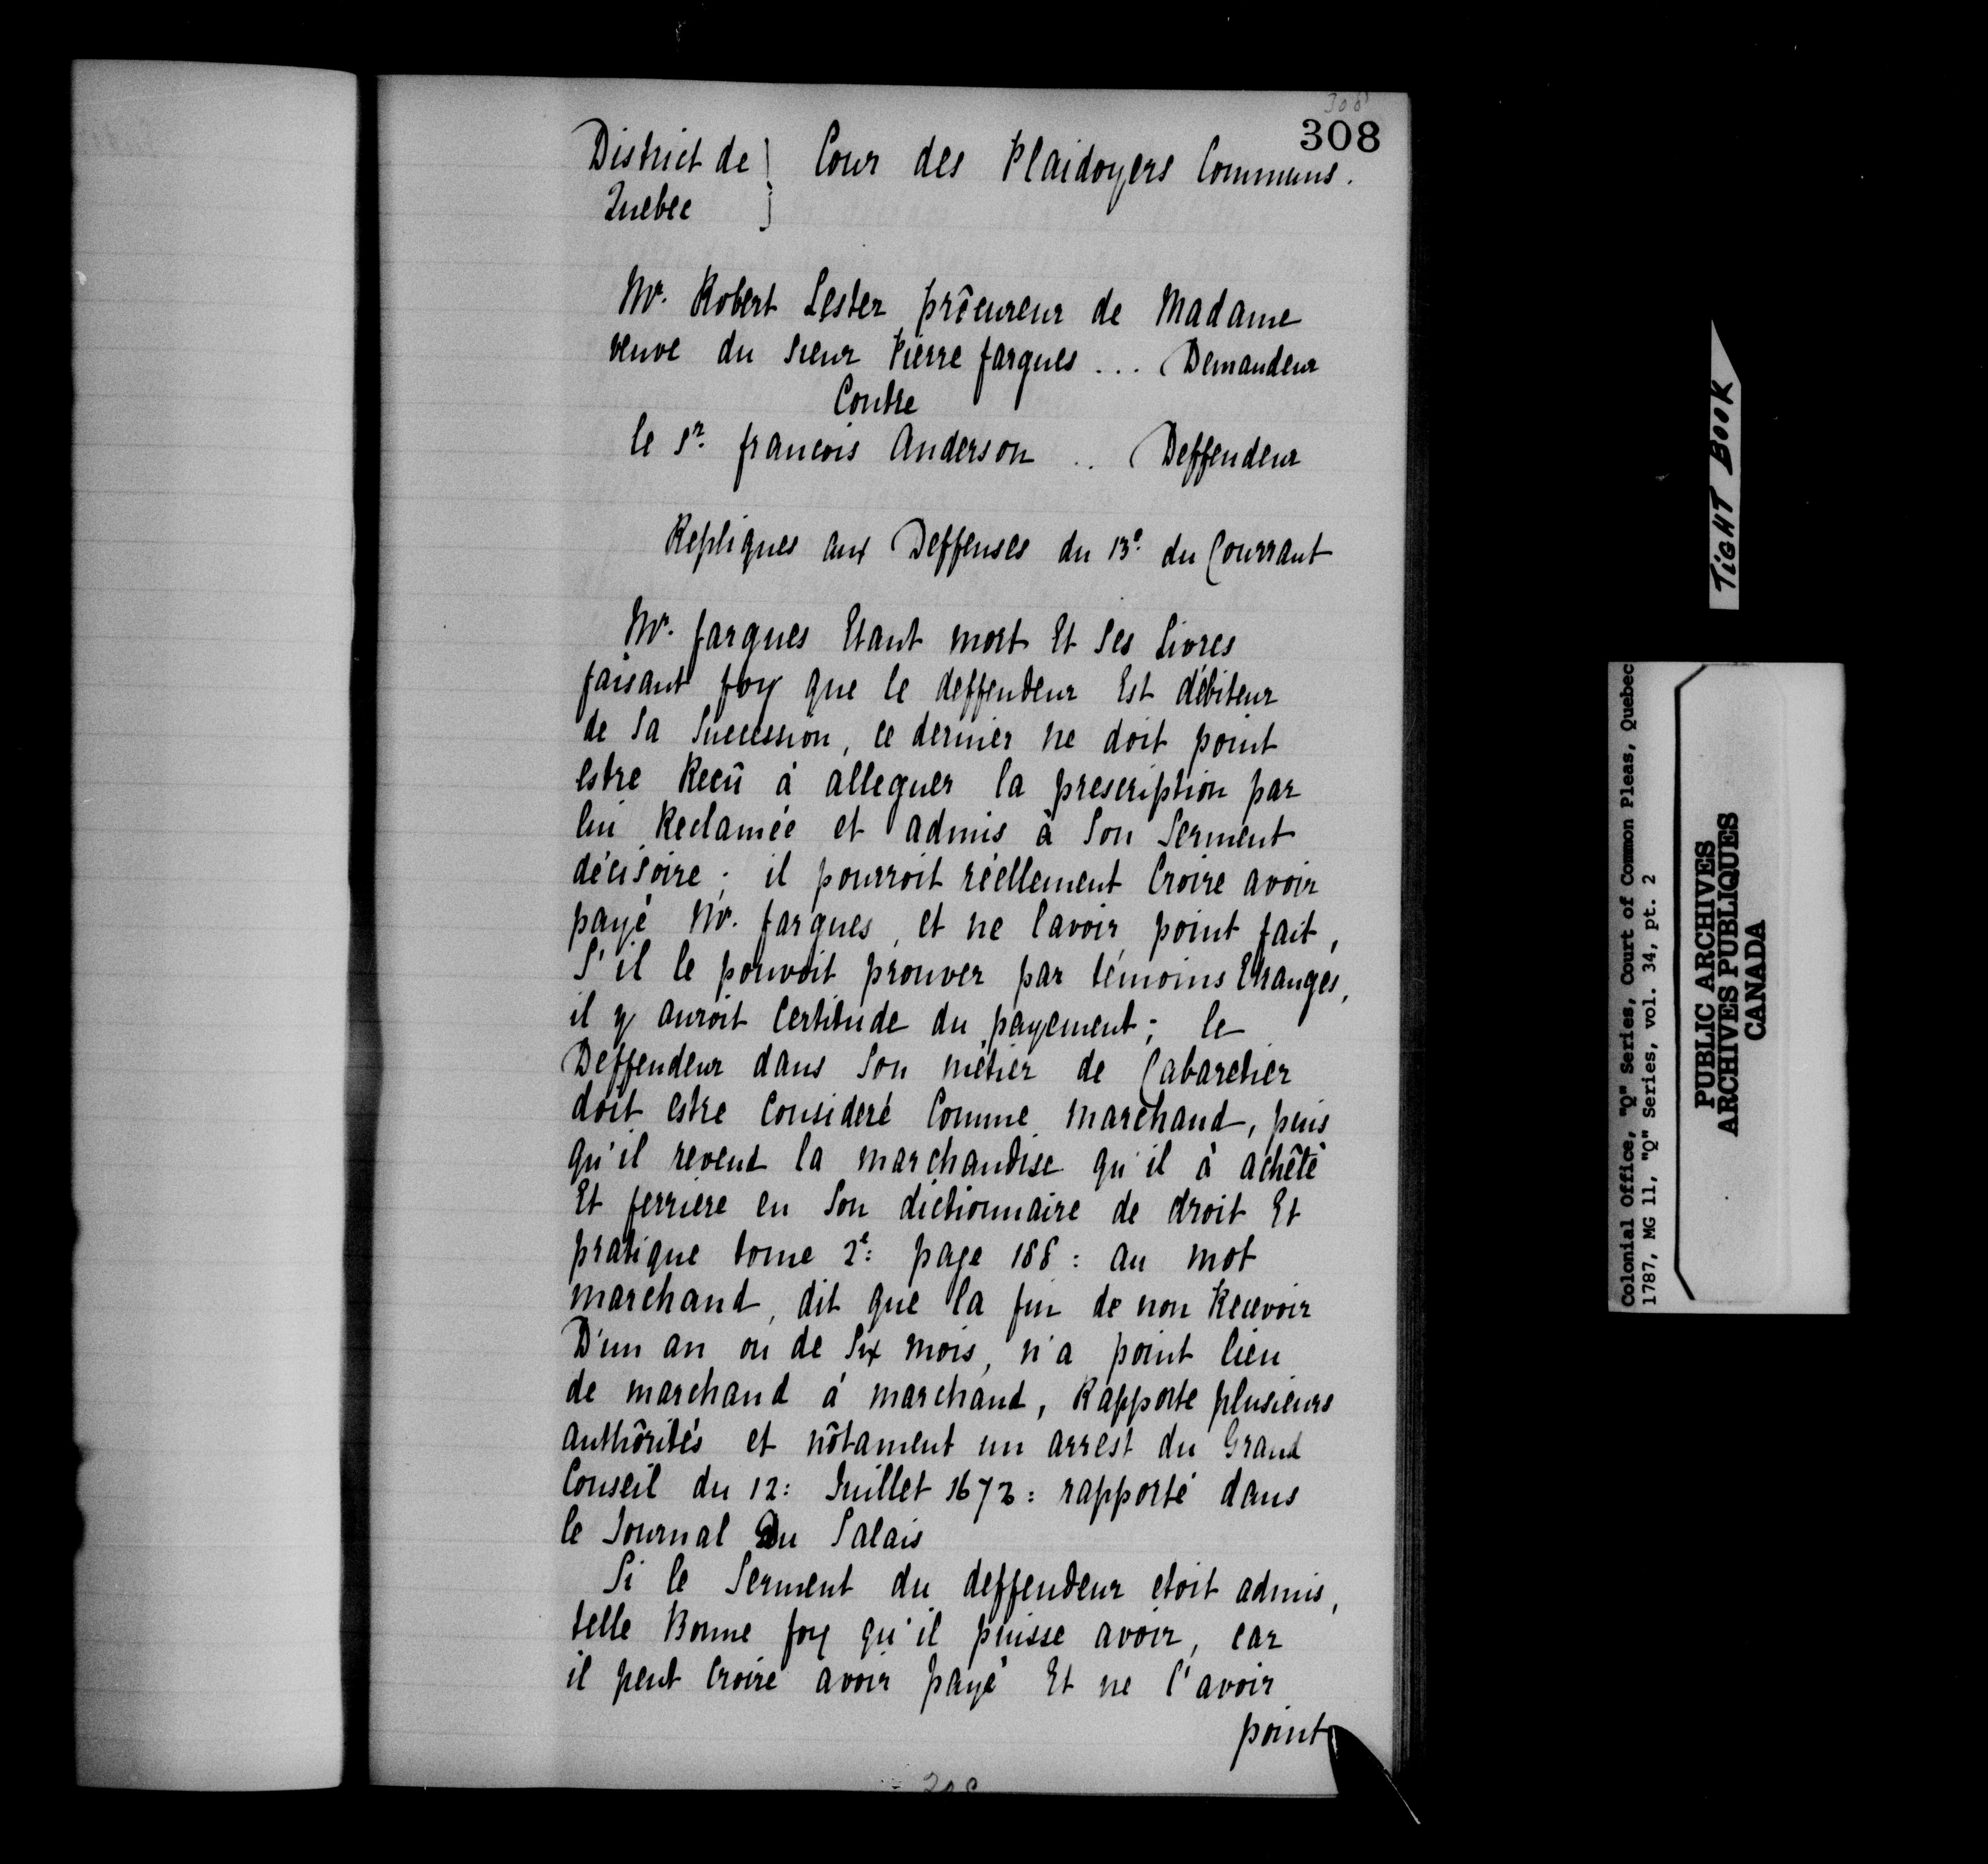 308
308
District de } Cour des Plaidoyers Communs.
Quebec }
Mr. Robert Lester prôcureur de Madame
veuve du sieur Pierre fargues ... Demandeur
Contre
le Sr. francois Anderson .. Deffendeur
Repliques aux Deffenses du 13e. du Courrant
Mr. fargues Etant mort Et Ses Livres
faisant foy que le deffendeur Est débiteur
de Sa Succession, ce dernier ne doit point
estre Recû à alleguer la prescription par
lui Reclamée et admis à Son Serment
décisoire; il pourroit réellement Croire avoir
payé Mr. fargues, et ne lavoir point fait,
S'il le pouvoit prouver par témoins Etranges,
il y auroit Certitude du payement; le
Deffendeur dans Son métier de Cabaretier
doit estre Consideré Comme marchand, puis
qu'il revend la marchandise qu'il à achêté
Et ferriere en Son dictionnaire de droit Et
pratique tome 2e: page 188: au mot
marchand, dit que la fin de non Recevoir
D'un an ou de Six mois, n'a point lieu
de marchand à marchand, Rapporte plusieurs
authôrités et nôtament un arrest du Grand
Conseil du 12: Juillet 1672: rapporté dans
le Journal Du Palais
Si le Serment du deffendeur etoit admis,
telle Bonne foy qu'il puisse avoir, car
il peut Croire avoir payé Et ne l'avoir
point
TIGHT BOOK
Colonial Office, "Q" Series, Court of Common Pleas, Quebec
1787, MG 11, "Q" Series, vol. 34, pt. 2
PUBLIC ARCHIVES
ARCHIVES PUBLIQUES
CANADA